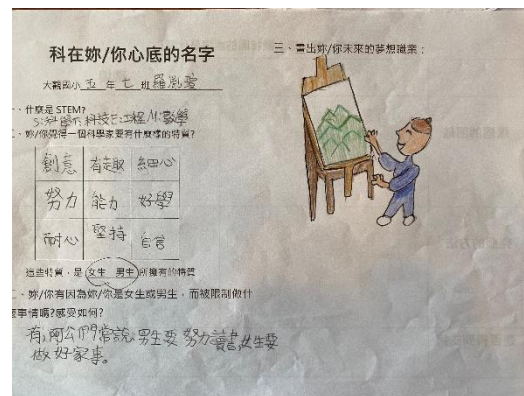 科在妳/你心底的名字
大觀國小 五 年 七 班
、什麼是 STEM?
S:科學 T:科技 E:工程 M:數學
、妳/你覺得一個科學家要有什麼樣的特質?
創意 有趣 細心
努力 能力 好學
耐心 堅持
這些特質,是 女生 男生 所擁有的特質
、妳/你有因為妳/你是女生或男生,而被限制做什
麼事情嗎?感受如何?
有,阿公們常說,男生要努力讀書,女生要
做好家事。
三、畫出妳/你未來的夢想職業: